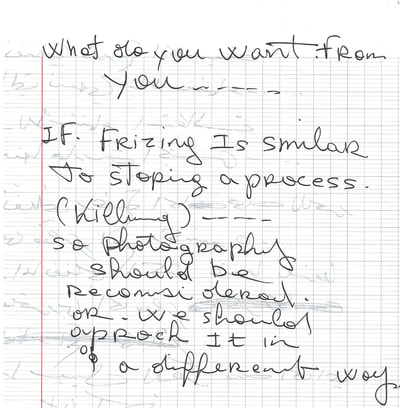 What do you want from
you -----
IF. Frizing Is similar
to stoping a process.
(Killing) ----
so photography
should be
reconsidered.
or. we should
approch It in
a different way.